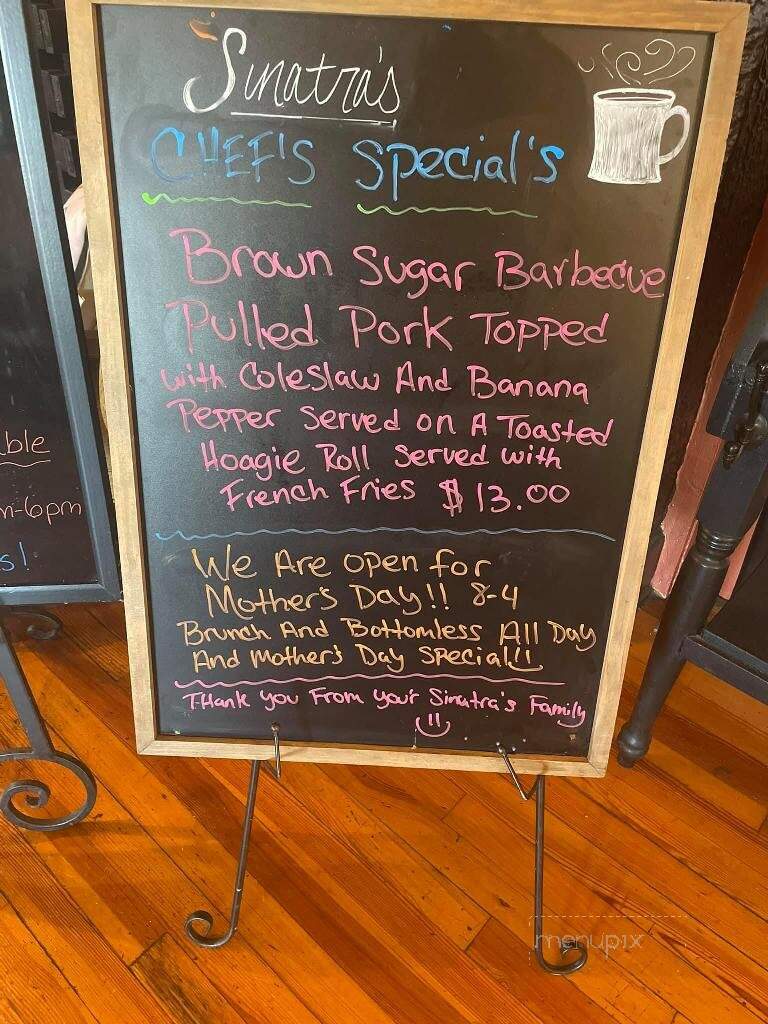 Sinatra's
CHEF'S Special's
Brown Sugar Barbecue
Pulled Pork Topped
with Coleslaw And Banana
Pepper Served on A Toasted
Hoagie Roll Served with
French Fries $13.00
We Are open for
Mother's Day!! 8-4
Brunch And Bottomless All Day
And Mother's Day Special!!
Thank you From your Sinatra's Family
ble
m-6pm
s!
menupix